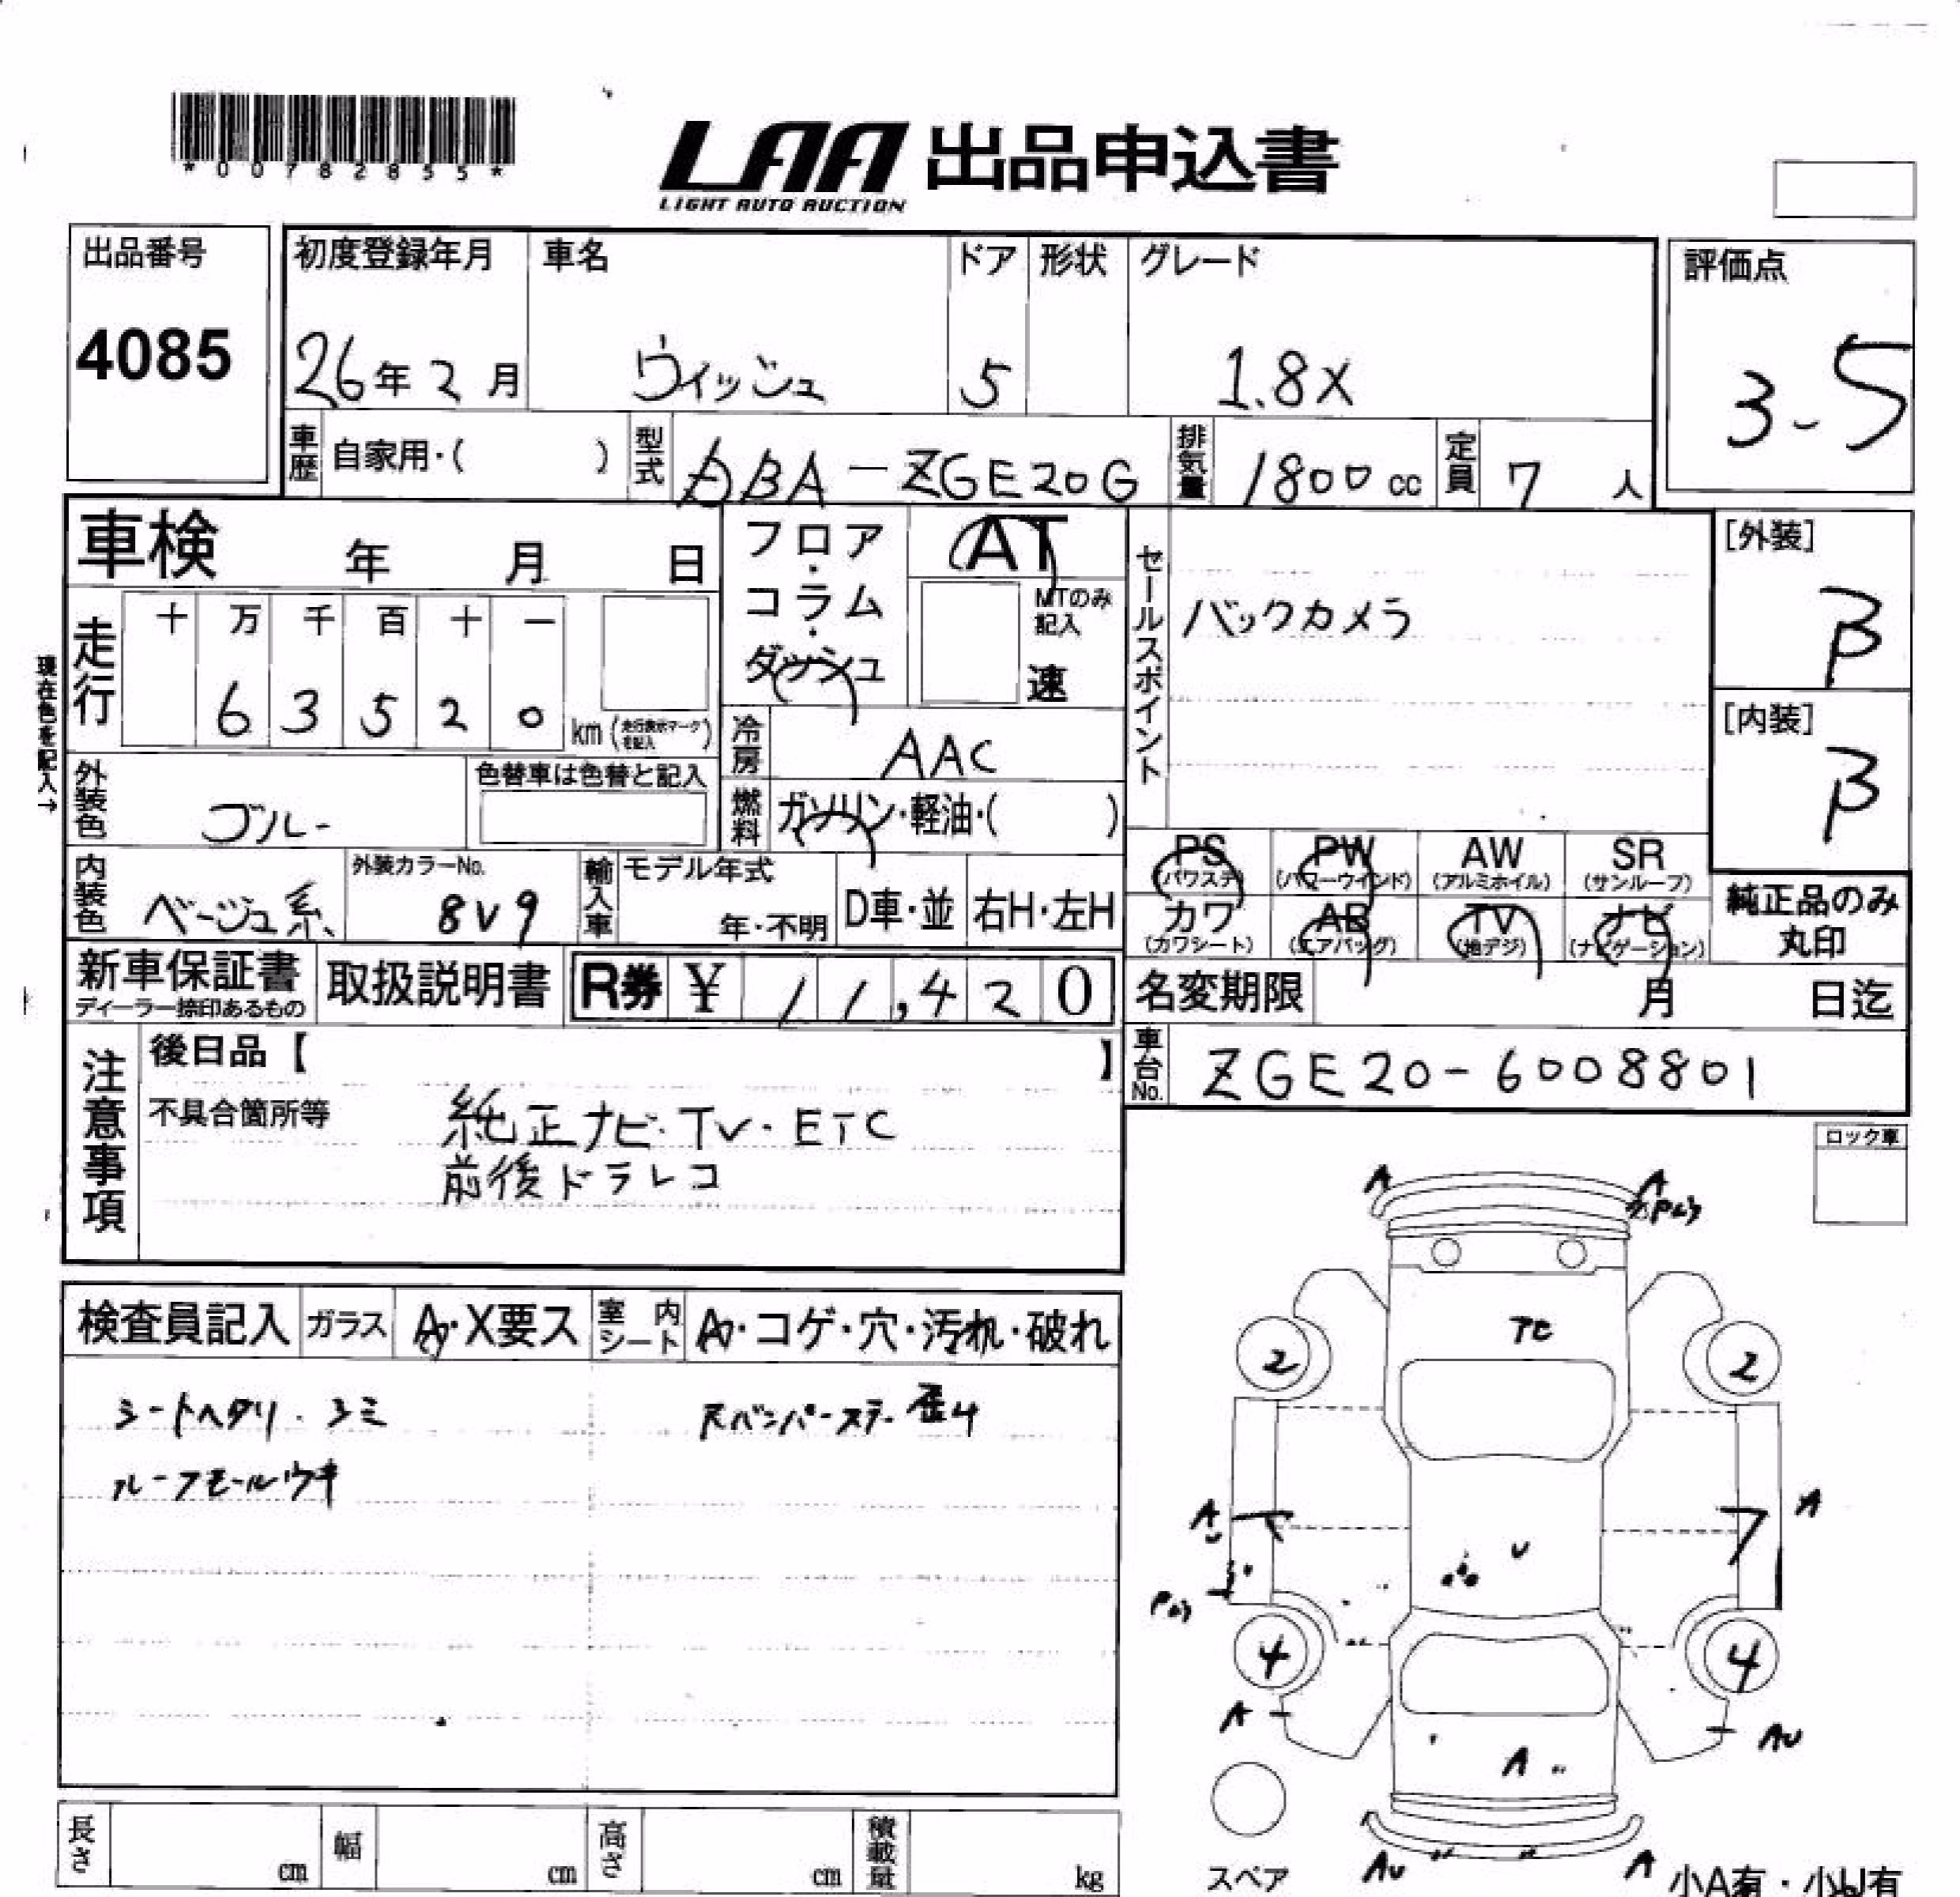 *00782855*
LAA 出品申込書
LIGHT AUTO AUCTION
出品番号
4085
初度登録年月 車名 ドア 形状 グレード
26年2月 ウィッシュ 5 1.8X
評価点
3.5
車歴 自家用・( ) 型式 DBA-ZGE20G 排気量 1800cc 定員 7人
車検 年 月 日
フロア・コラム・ダッシュ
AT
MTのみ記入
速
セールスポイント
バックカメラ
[外装]
β
[内装]
β
現在色を記入→
走行 十 万 千 百 十 一
6 3 5 2 0 km (走行表示マークを記入)
冷房 AAC
燃料 ガソリン・軽油・( )
外装色 ブルー
色替車は色替と記入
内装色 ベージュ系
外装カラーNo.
8V9
輸入車 モデル年式
年・不明 D車・並 右H・左H
PS (パワステ) PW (パワーウインド) AW (アルミホイル) SR (サンルーフ)
カワ (カワシート) AB (エアバッグ) TV (地デジ) ナビ (ナビゲーション)
純正品のみ
丸印
新車保証書
ディーラー捺印あるもの
取扱説明書
R券 ¥ 11,420
名変期限 月 日迄
車台No. ZGE20-6008801
注意事項
後日品【 】
不具合箇所等 純正ナビ・TV・ETC
前後ドラレコ
ロック車
検査員記入 ガラス A・X要ス 室内シート A・コゲ・穴・汚れ・破れ
シートヘタリ・シミ
ルーフモールウキ
A
A
2
2
A
A
U
4
4
A
AU
A
AU
A
スペア
小A有・小U有
長さ cm 幅 cm 高さ cm 積載量 kg